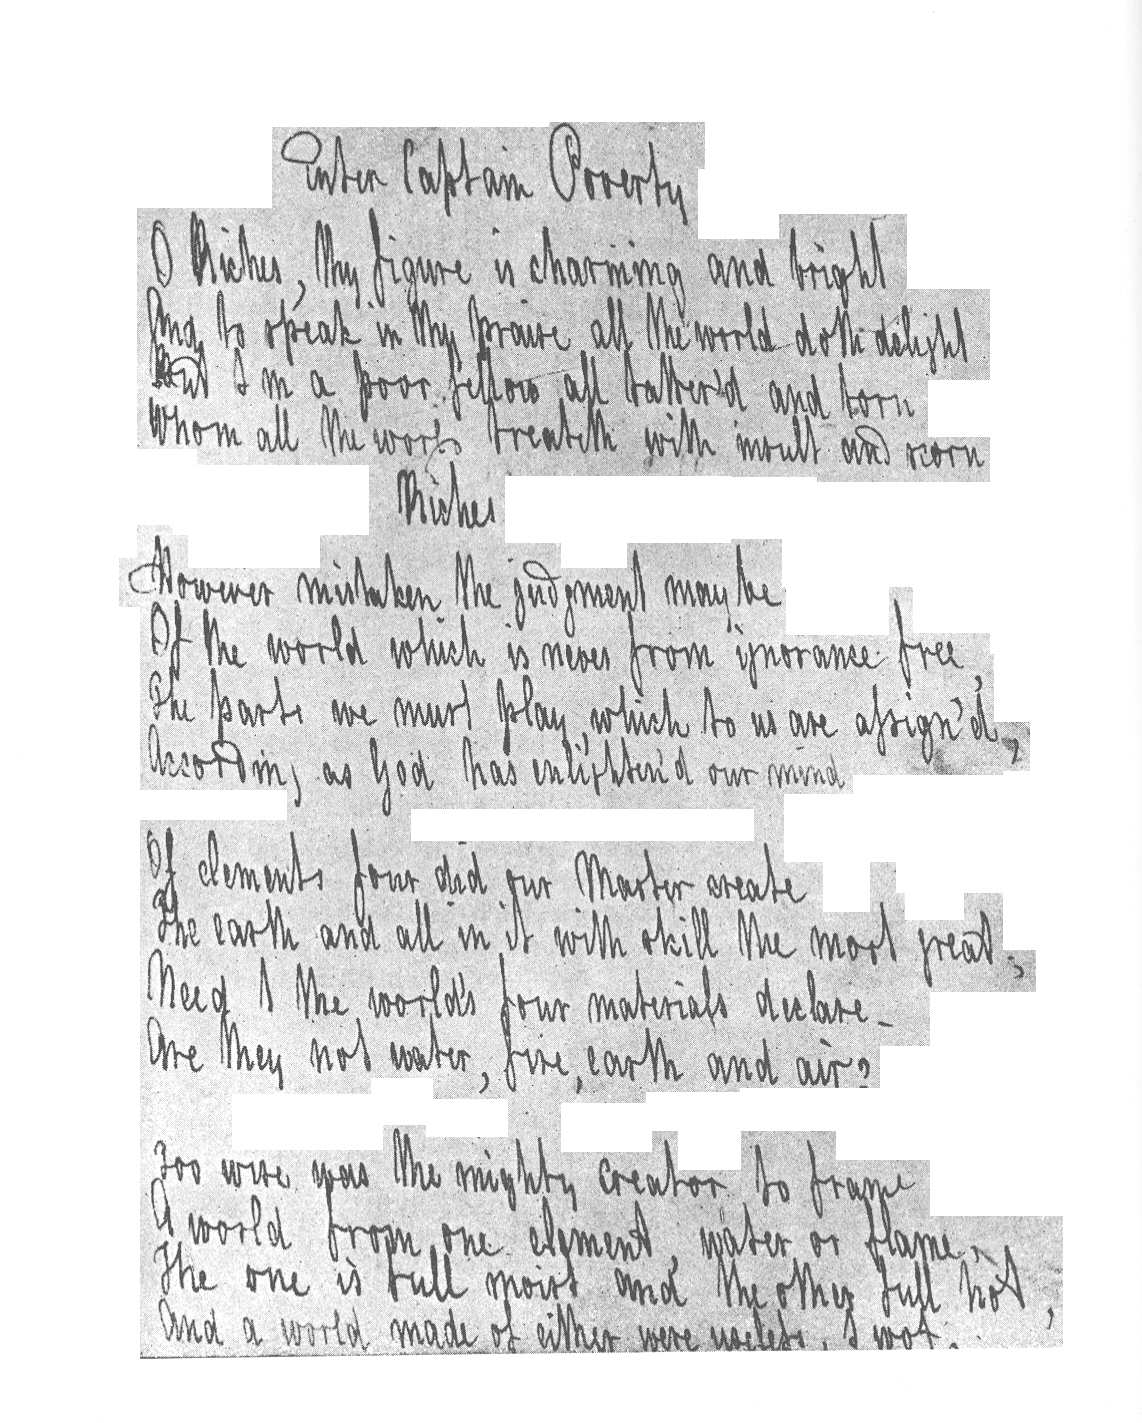 Enter Captain Poverty
O Riches, thy figure is charming and bright
And to speak in thy praise all the world doth delight
But I'm a poor fellow all tatter'd and torn
Whom all the world treateth with insult and scorn
Riches
However mistaken the judgment may be
Of the world which is never from ignorance free,
The parts we must play, which to us are assign'd,
According as God has enlighten'd our mind
Of elements four did our Master create
The earth and all in it with skill the most great;
Need I the world's four materials declare—
Are they not water, fire, earth and air?
Too wise was the mighty creator to frame
A world from one element, water or flame,
The one is full moist and the other full hot,
And a world made of either were useless, I wot.